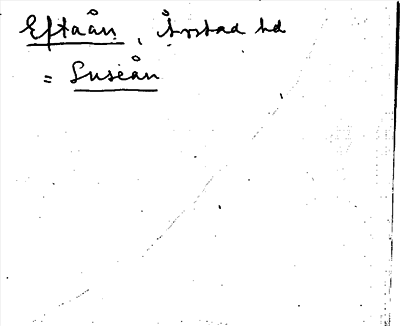 Eftaån, Årstad hd
= Luseån